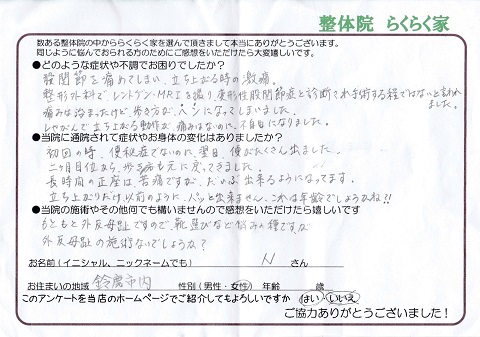 整体院 らくらく家
数ある整体院の中かららくらく家を選んで頂きまして本当にありがとうございます。
同じように悩んでおられる方のためにご感想をいただけたら大変嬉しいです。
●どのような症状や不調でお困りでしたか?
股関節を痛めてしまい、立ち上がる時の激痛。
整形外科で、レントゲン・MRIを撮り、変形性股関節症と診断され手術する程ではないと言われ
ました。
痛みは治まったけど歩き方が、ヘンになってしまいました。
しゃがんで立ち上がる動作が、痛みはないのに、不自由になりました。
●当院に通院されて症状やお身体の変化はありましたか?
初回の時、便秘症でないのに、翌日、便がたくさん出ました。
二ヶ月目位から、歩き方も元に戻ってきました
長時間の正座は、苦痛ですが、だいぶ出来るようになってます。
立ち上がりが以前のように、パッと出来ません。これは年齢でしょうかね!!
●当院の施術やその他何でも構いませんので感想をいただけたら嬉しいです
もともと外反母趾ですので、靴選びなど悩みの種ですが
外反母趾の施術ないでしょうか?
お名前(イニシャル、ニックネームでも) N さん
お住まいの地域 鈴鹿市内 性別(男性・女性) 年齢 歳
このアンケートを当店のホームページでご紹介してもよろしいですか (はい・いいえ)
ご協力ありがとうございました!